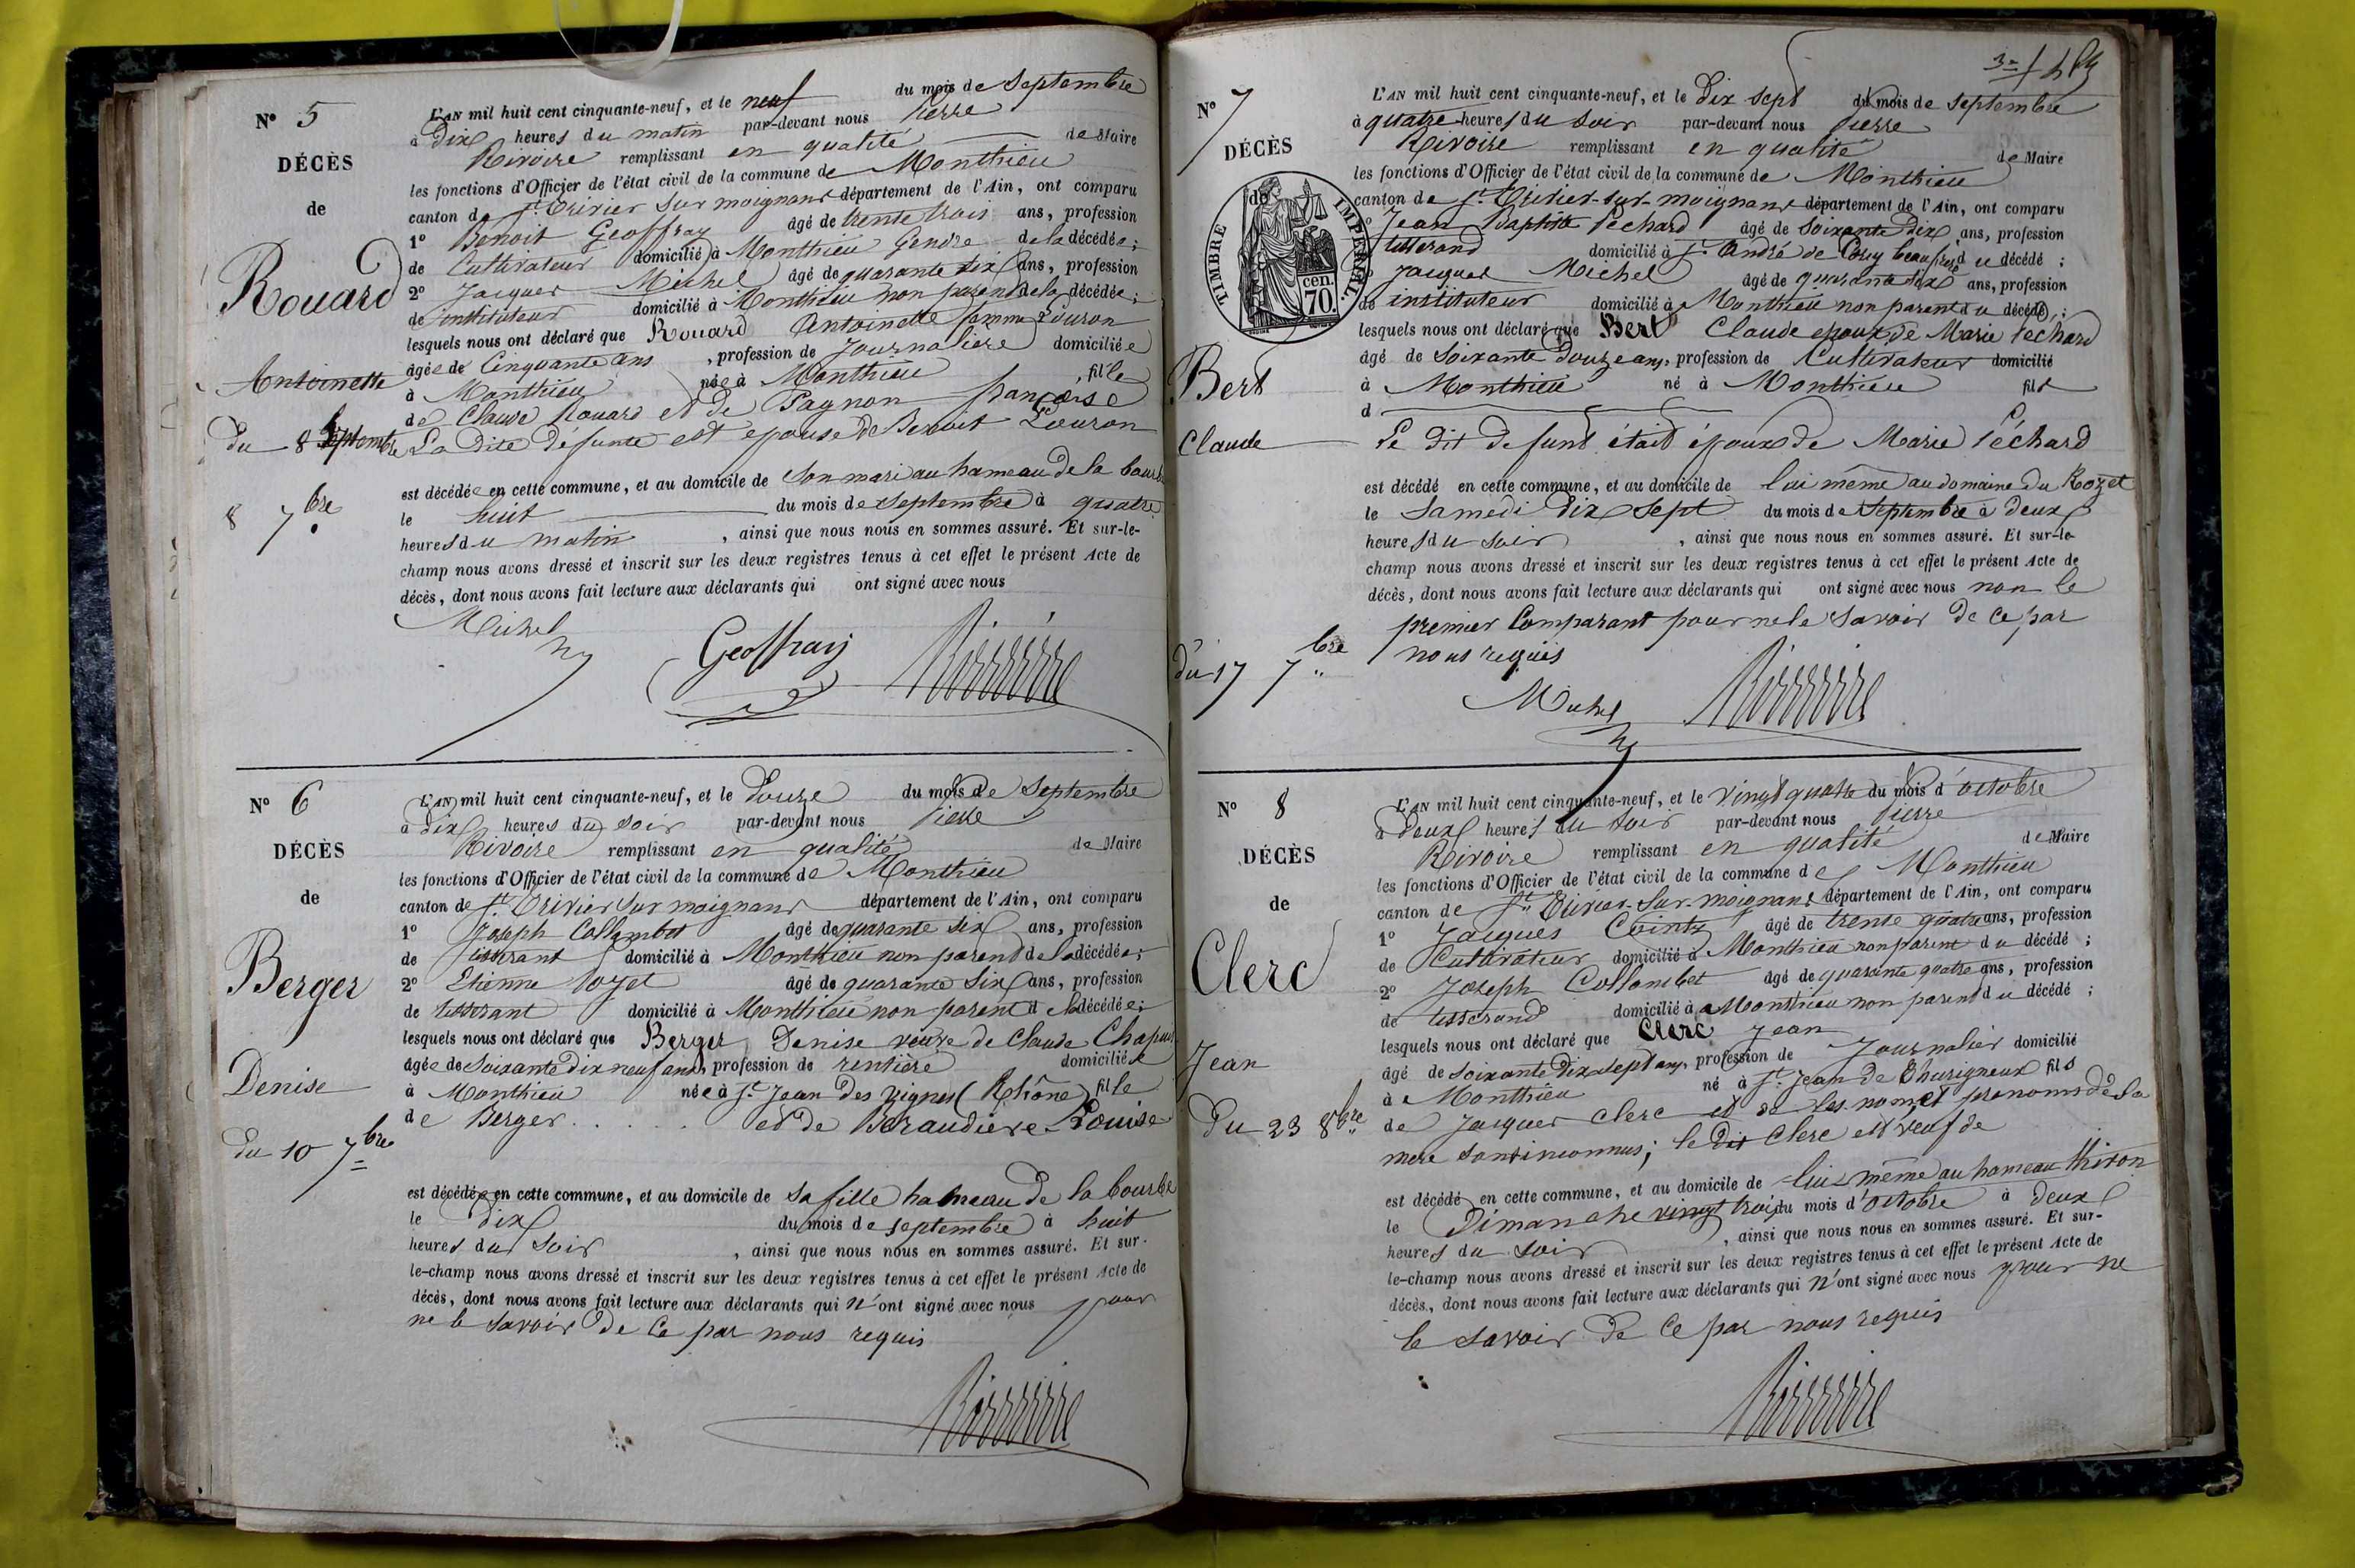 N° 5
DÉCÈS
de
Rouard
Antoinette
Du 8 Septembre
8 7bre
L'AN mil huit cent cinquante-neuf, et le neuf du mois de Septembre
à Dix heures du matin par-devant nous Pierre
Rivoire remplissant en qualité de Maire
les fonctions d'Officier de l'état civil de la commune de Monthieu
canton de St Trivier sur moignans département de l'Ain, ont comparu
1° Benoit Geoffray âgé de trente trois ans, profession
de Cultivateur domicilié à Monthieu Gendre de la décédée;
2° Jacques Michel âgé de quarante six ans, profession
de instituteur domicilié à Monthieu non parent de la décédée;
lesquels nous ont déclaré que Rouard Antoinette femme Louron
âgée de Cinquante ans, profession de Journalière domiciliée
à Monthieu née à Monthieu, fille
de Claude Rouard et de Pagnon françoise
La Dite Défunte est epouse de Benoit Louron
est décédée en cette commune, et au domicile de son mari au hameau de la bourbe
le huit du mois de Septembre à quatre
heures du matin, ainsi que nous nous en sommes assuré. Et sur-le-
champ nous avons dressé et inscrit sur les deux registres tenus à cet effet le présent Acte de
décès, dont nous avons fait lecture aux déclarants qui ont signé avec nous
Michel Geoffray Rivoire
N° 6
DÉCÈS
de
Berger
Denise
Du 10 7bre
L'AN mil huit cent cinquante-neuf, et le Douze du mois de Septembre
à dix heures du soir par-devant nous Pierre
Rivoire remplissant en qualité de Maire
les fonctions d'Officier de l'état civil de la commune de Monthieu
canton de St Trivier sur moignans département de l'Ain, ont comparu
1° Joseph Collombet âgé de quarante six ans, profession
de tisserant domicilié à Monthieu non parent de la décédée;
2° Etienne âgé de quarante six ans, profession
de tisserant domicilié à Monthieu non parent de la décédée;
lesquels nous ont déclaré que Berger Denise veuve de Claude Chapuis
âgée de Soixante dix neuf ans, profession de rentière domiciliée
à Monthieu née à St Jean Des Vignes (Rhône) fille
de Berger . . . . . et de Beraudière Louise
est décédée en cette commune, et au domicile de sa fille hameau de la bourbe
le dix du mois de septembre à huit
heures du soir, ainsi que nous nous en sommes assuré. Et sur-
le-champ nous avons dressé et inscrit sur les deux registres tenus à cet effet le présent Acte de
décès, dont nous avons fait lecture aux déclarants qui n'ont signé avec nous pour
ne le savoir de ce par nous requis
Rivoire
N° 7
DÉCÈS
TIMBRE IMPÉRIAL
de
70 cen.
Bert
Claude
Du 17 7bre
L'AN mil huit cent cinquante-neuf, et le Dix Sept du mois de septembre
à quatre heures du soir par-devant nous Pierre
Rivoire remplissant en qualité de Maire
les fonctions d'Officier de l'état civil de la commune de Monthieu
canton de St Trivier-sur-moignans département de l'Ain, ont comparu
1° Jean Baptiste Péchard âgé de Soixante Dix ans, profession
tisserand domicilié à St André de Corcy beau frère du décédé;
Jacques Michel âgé de quarante six ans, profession
de instituteur domicilié à Monthieu non parent du décédé;
lesquels nous ont déclaré que Bert Claude epoux de Marie Pechard
âgé de Soixante Douze ans, profession de Cultivateur domicilié
à Monthieu né à Monthieu fils
d
Le dit defunt était époux de Marie Péchard
est décédé en cette commune, et au domicile de lui même au domaine du Rozet
le Samedi Dix sept du mois de Septembre à deux
heures du soir, ainsi que nous nous en sommes assuré. Et sur-le-
champ nous avons dressé et inscrit sur les deux registres tenus à cet effet le présent Acte de
décès, dont nous avons fait lecture aux déclarants qui ont signé avec nous non le
premier Comparant pour ne le savoir de ce par
nous requis
Michel Rivoire
N° 8
DÉCÈS
de
Clerc
Jean
Du 23 8bre
L'AN mil huit cent cinquante-neuf, et le vingt quatre du mois d'octobre
à Deux heures du soir par-devant nous Pierre
Rivoire remplissant en qualité de Maire
les fonctions d'Officier de l'état civil de la commune de Monthieu
canton de St Trivier-sur-moignans département de l'Ain, ont comparu
1° Jacques Cointy âgé de trente quatre ans, profession
de Cultivateur domicilié à Monthieu non parent du décédé;
2° Joseph Collombet âgé de quarante quatre ans, profession
de tisserand domicilié à Monthieu non parent du décédé;
lesquels nous ont déclaré que Clerc Jean
âgé de soixante Dix sept ans, profession de Journalier domicilié
à Monthieu né à St Jean de Thurigneux fils
de Jacques Clerc et de les nom et prenoms de la
mere sont inconnus; le dit Clerc est veuf de
est décédé en cette commune, et au domicile de lui même au hameau
le Dimanche vingt trois du mois d'octobre à deux
heures du soir, ainsi que nous nous en sommes assuré. Et sur-
le-champ nous avons dressé et inscrit sur les deux registres tenus à cet effet le présent Acte de
décès, dont nous avons fait lecture aux déclarants qui n'ont signé avec nous pour ne
le savoir de ce par nous requis
Rivoire